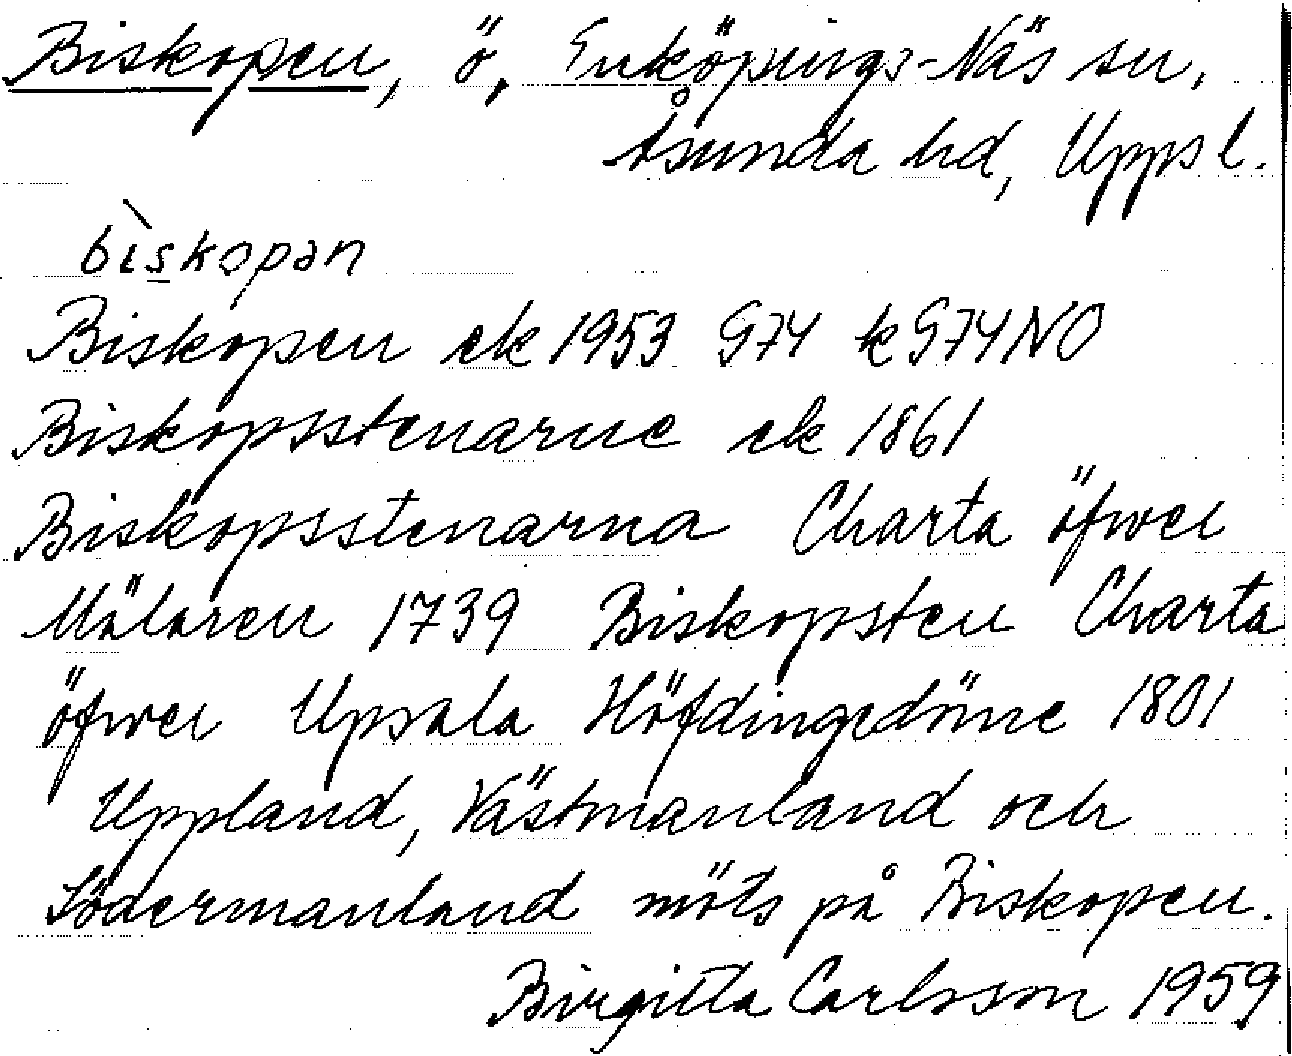 Biskopen, ö, Enköpings-Näs sn,
Åsunda hd, Uppsl.
bìskopən
Biskopen ek 1953 974 k974NO
Biskopsstenarne ek 1861
Biskopsstenarna Charta öfwer
Mälaren 1739 Biskopsten Charta
öfwer Upsala Höfdingedöme 1801
Uppland, Västmanland och
Södermanland möts på Biskopen.
Birgitta Carlsson 1959